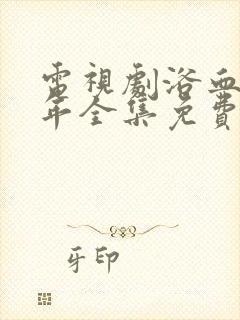 電視劇浴血
年全集免費
牙印